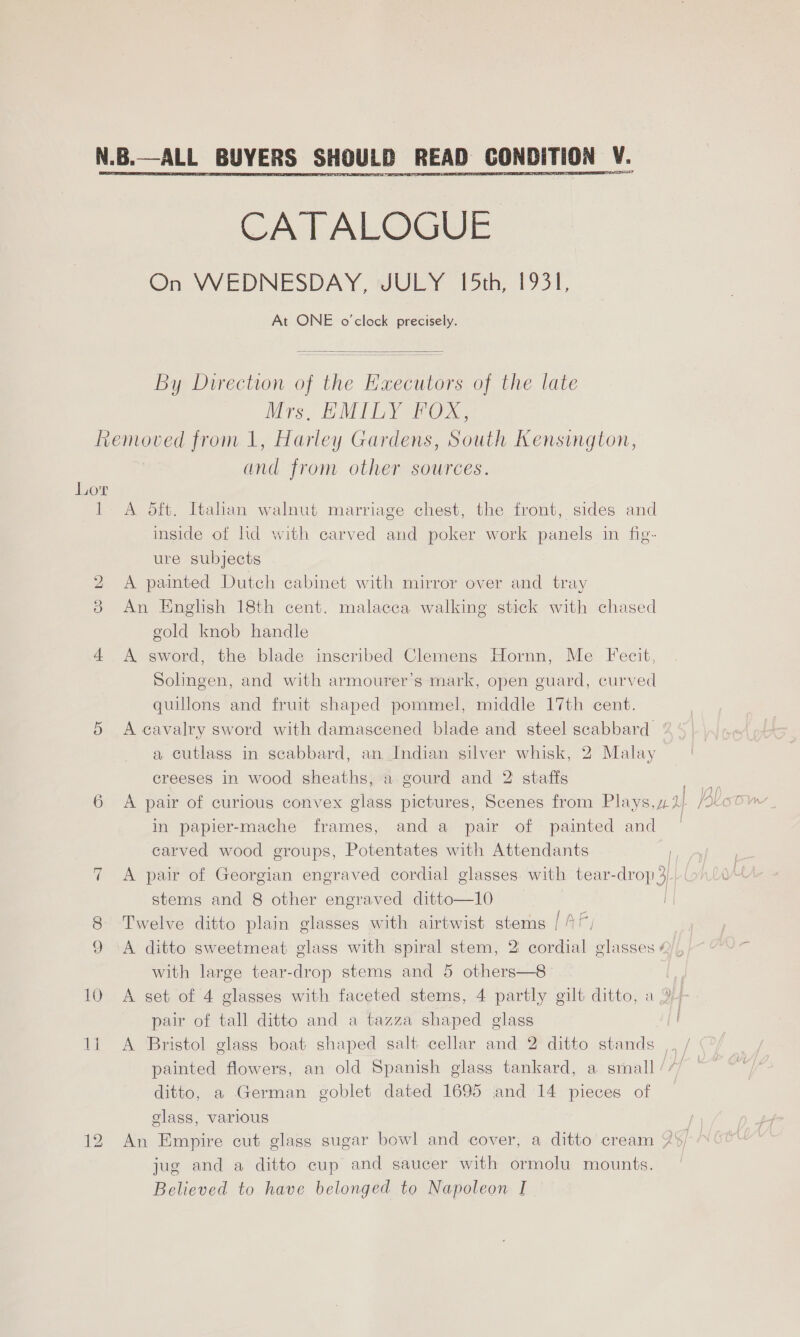 N.B.—ALL BUYERS SHOULD READ CONDITION V.
CATALOGUE
On WEDNESDAY, JULY 15th, 1931,
At ONE o'clock precisely.
By Direction of the Executors of the late
Mrs. EMILY FOX,
Removed from 1, Harley Gardens, South Kensington,
and from other sources.
LOT
1 A 5ft. Italian walnut marriage chest, the front, sides and
inside of lid with carved and poker work panels in fig-
ure subjects
2 A painted Dutch cabinet with mirror over and tray
3 An English 18th cent. malacca walking stick with chased
gold knob handle
4 A sword, the blade inscribed Clemens Hornn, Me Fecit,
Solingen, and with armourer's mark, open guard, curved
quillons and fruit shaped pommel, middle 17th cent.
5 A cavalry sword with damascened blade and steel scabbard
a cutlass in scabbard, an Indian silver whisk, 2 Malay
creeses in wood sheaths, a gourd and 2 staffs
6 A pair of curious convex glass pictures, Scenes from Plays,
in papier-mache frames, and a pair of painted and
carved wood groups, Potentates with Attendants
7 A pair of Georgian engraved cordial glasses with tear-drop
stems and 8 other engraved ditto—10
8 Twelve ditto plain glasses with airtwist stems
9 A ditto sweetmeat glass with spiral stem, 2 cordial glasses
with large tear-drop stems and 5 others—8
10 A set of 4 glasses with faceted stems, 4 partly gilt ditto, a
pair of tall ditto and a tazza shaped glass
11 A Bristol glass boat shaped salt cellar and 2 ditto stands
painted flowers, an old Spanish glass tankard, a small
ditto, a German goblet dated 1695 and 14 pieces of
glass, various
12 An Empire cut glass sugar bowl and cover, a ditto cream
jug and a ditto cup and saucer with ormolu mounts.
Believed to have belonged to Napoleon I